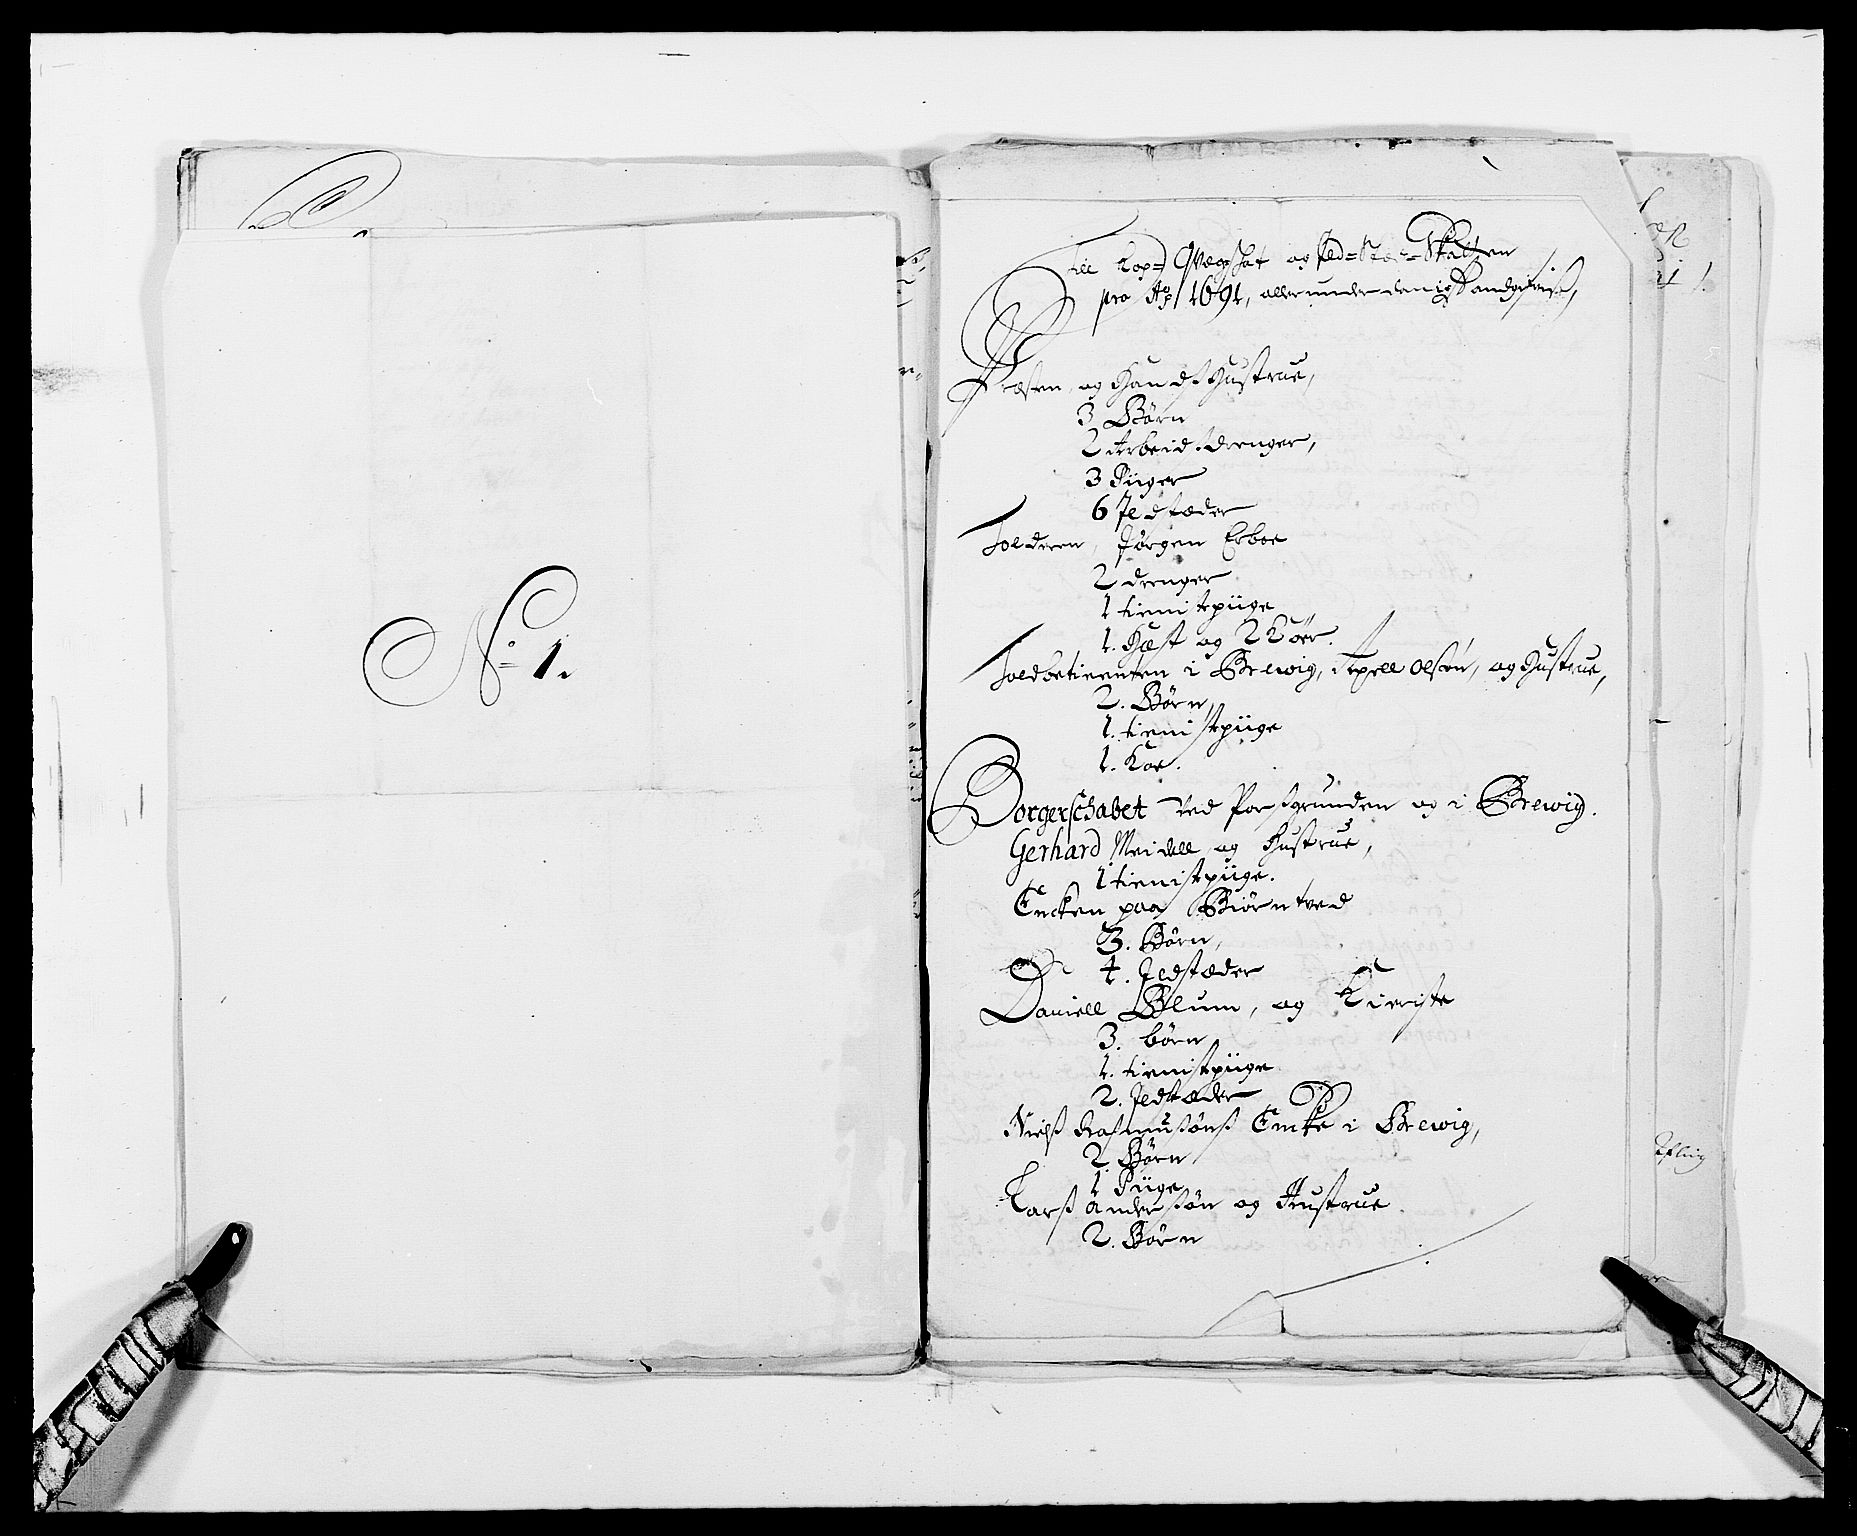 No 1.
Till Kop= Qvægschat og Ild=Sted=Skatten
pro Ao 1691, allerunderdanigst andgifvis,
Præsten, og Hands Hustrue,
3 Børn
2 Arbeidsdrenger,
3 Piiger
6 Ildstæder
Tolderen, Jørgen Erboe
2 drenger
1 tienistpiige
1. Hæst og 2 Kiør.
Toldbetienten i Brewig, Apell Olsøn, og Hustrue,
2. Børn,
1. tienistpiige
1. Koe.
Borgerschabet ved Porsgrunden og i Brewig.
Gerhard Meidell og Hustrue,
1 tienistpiige.
Encken paa Biørntved
3. Børn,
4. Ildstæder
Daniell Blum, og Kieriste
3. børn
1. tienistpiige
2. Ildstæder
Nielß Rasmusønß Encke i Brewig,
2. Børn
1 Piige
Larß Anderßøn og Hustrue
2. Børn